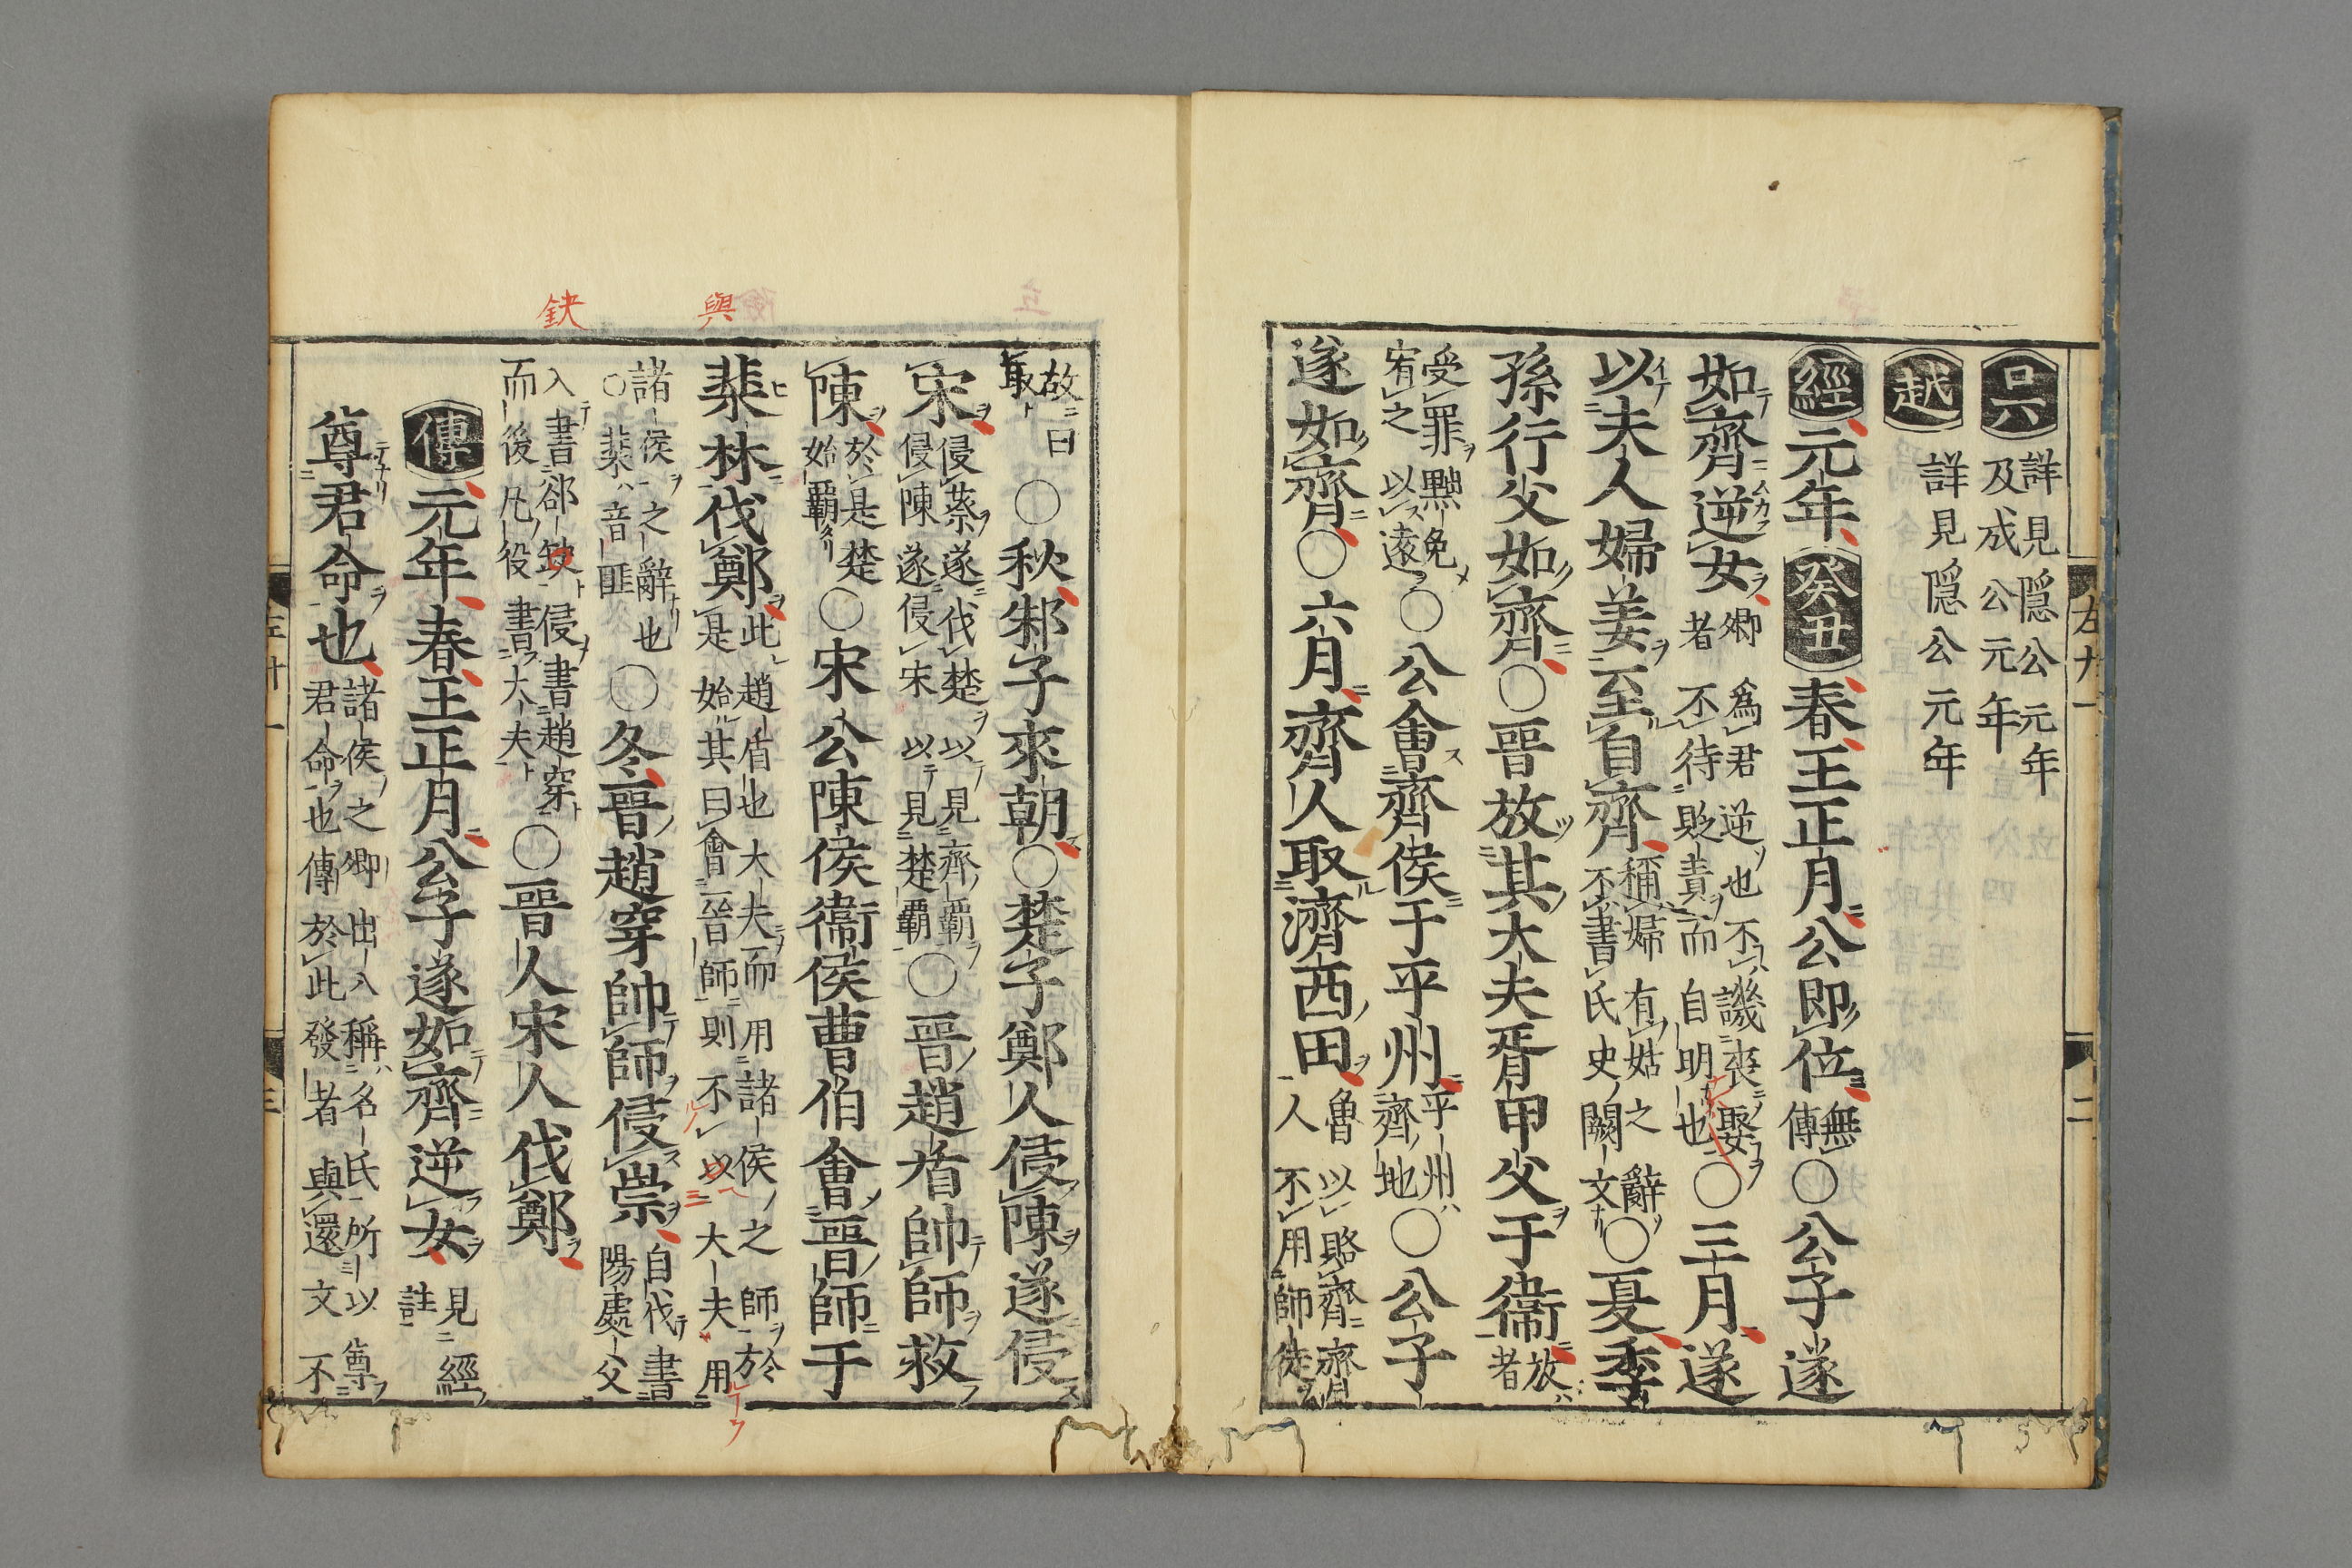 左九
二
吕詳見隱公元年
及成公元年
越詳見隱公元年
經元年癸丑春王正月公即位無傳○公子遂
如齊逆女卿爲君逆也不譏喪娶
者不待貶責而自明也○三月遂
以夫人婦姜至自齊稱婦有姑之辭
不書氏史闕文○夏季
孫行父如齊○晉放其大夫胥甲父于衞放
者
受罪黜免
宥之以遠○公會齊侯于平州平州
齊地○公子
遂如齊○六月齊人取濟西田魯以賂齊齊
人不用師徒
與
鈌
故曰
取○秋邾子來朝○楚子鄭人侵陳遂侵
宋侵蔡遂伐楚以見齊霸
侵陳遂侵宋以見楚霸○晉趙盾帥師救
陳於是楚
始霸○宋公陳侯衞侯曹伯會晉師于
棐林伐鄭此趙盾也大夫而用諸侯之師於
是始其曰會晉師則不以大夫用
諸侯之辭也
○棐音匪○冬晉趙穿帥師侵崇自伐書
陽處父
入書郤缺侵書趙穿
而後凡役書大夫○晉人宋人伐鄭
傳元年春王正月公子遂如齊逆女見經
註
尊君命也諸侯之卿出入稱名氏所以尊
君命也傳於此發者與還文不
三